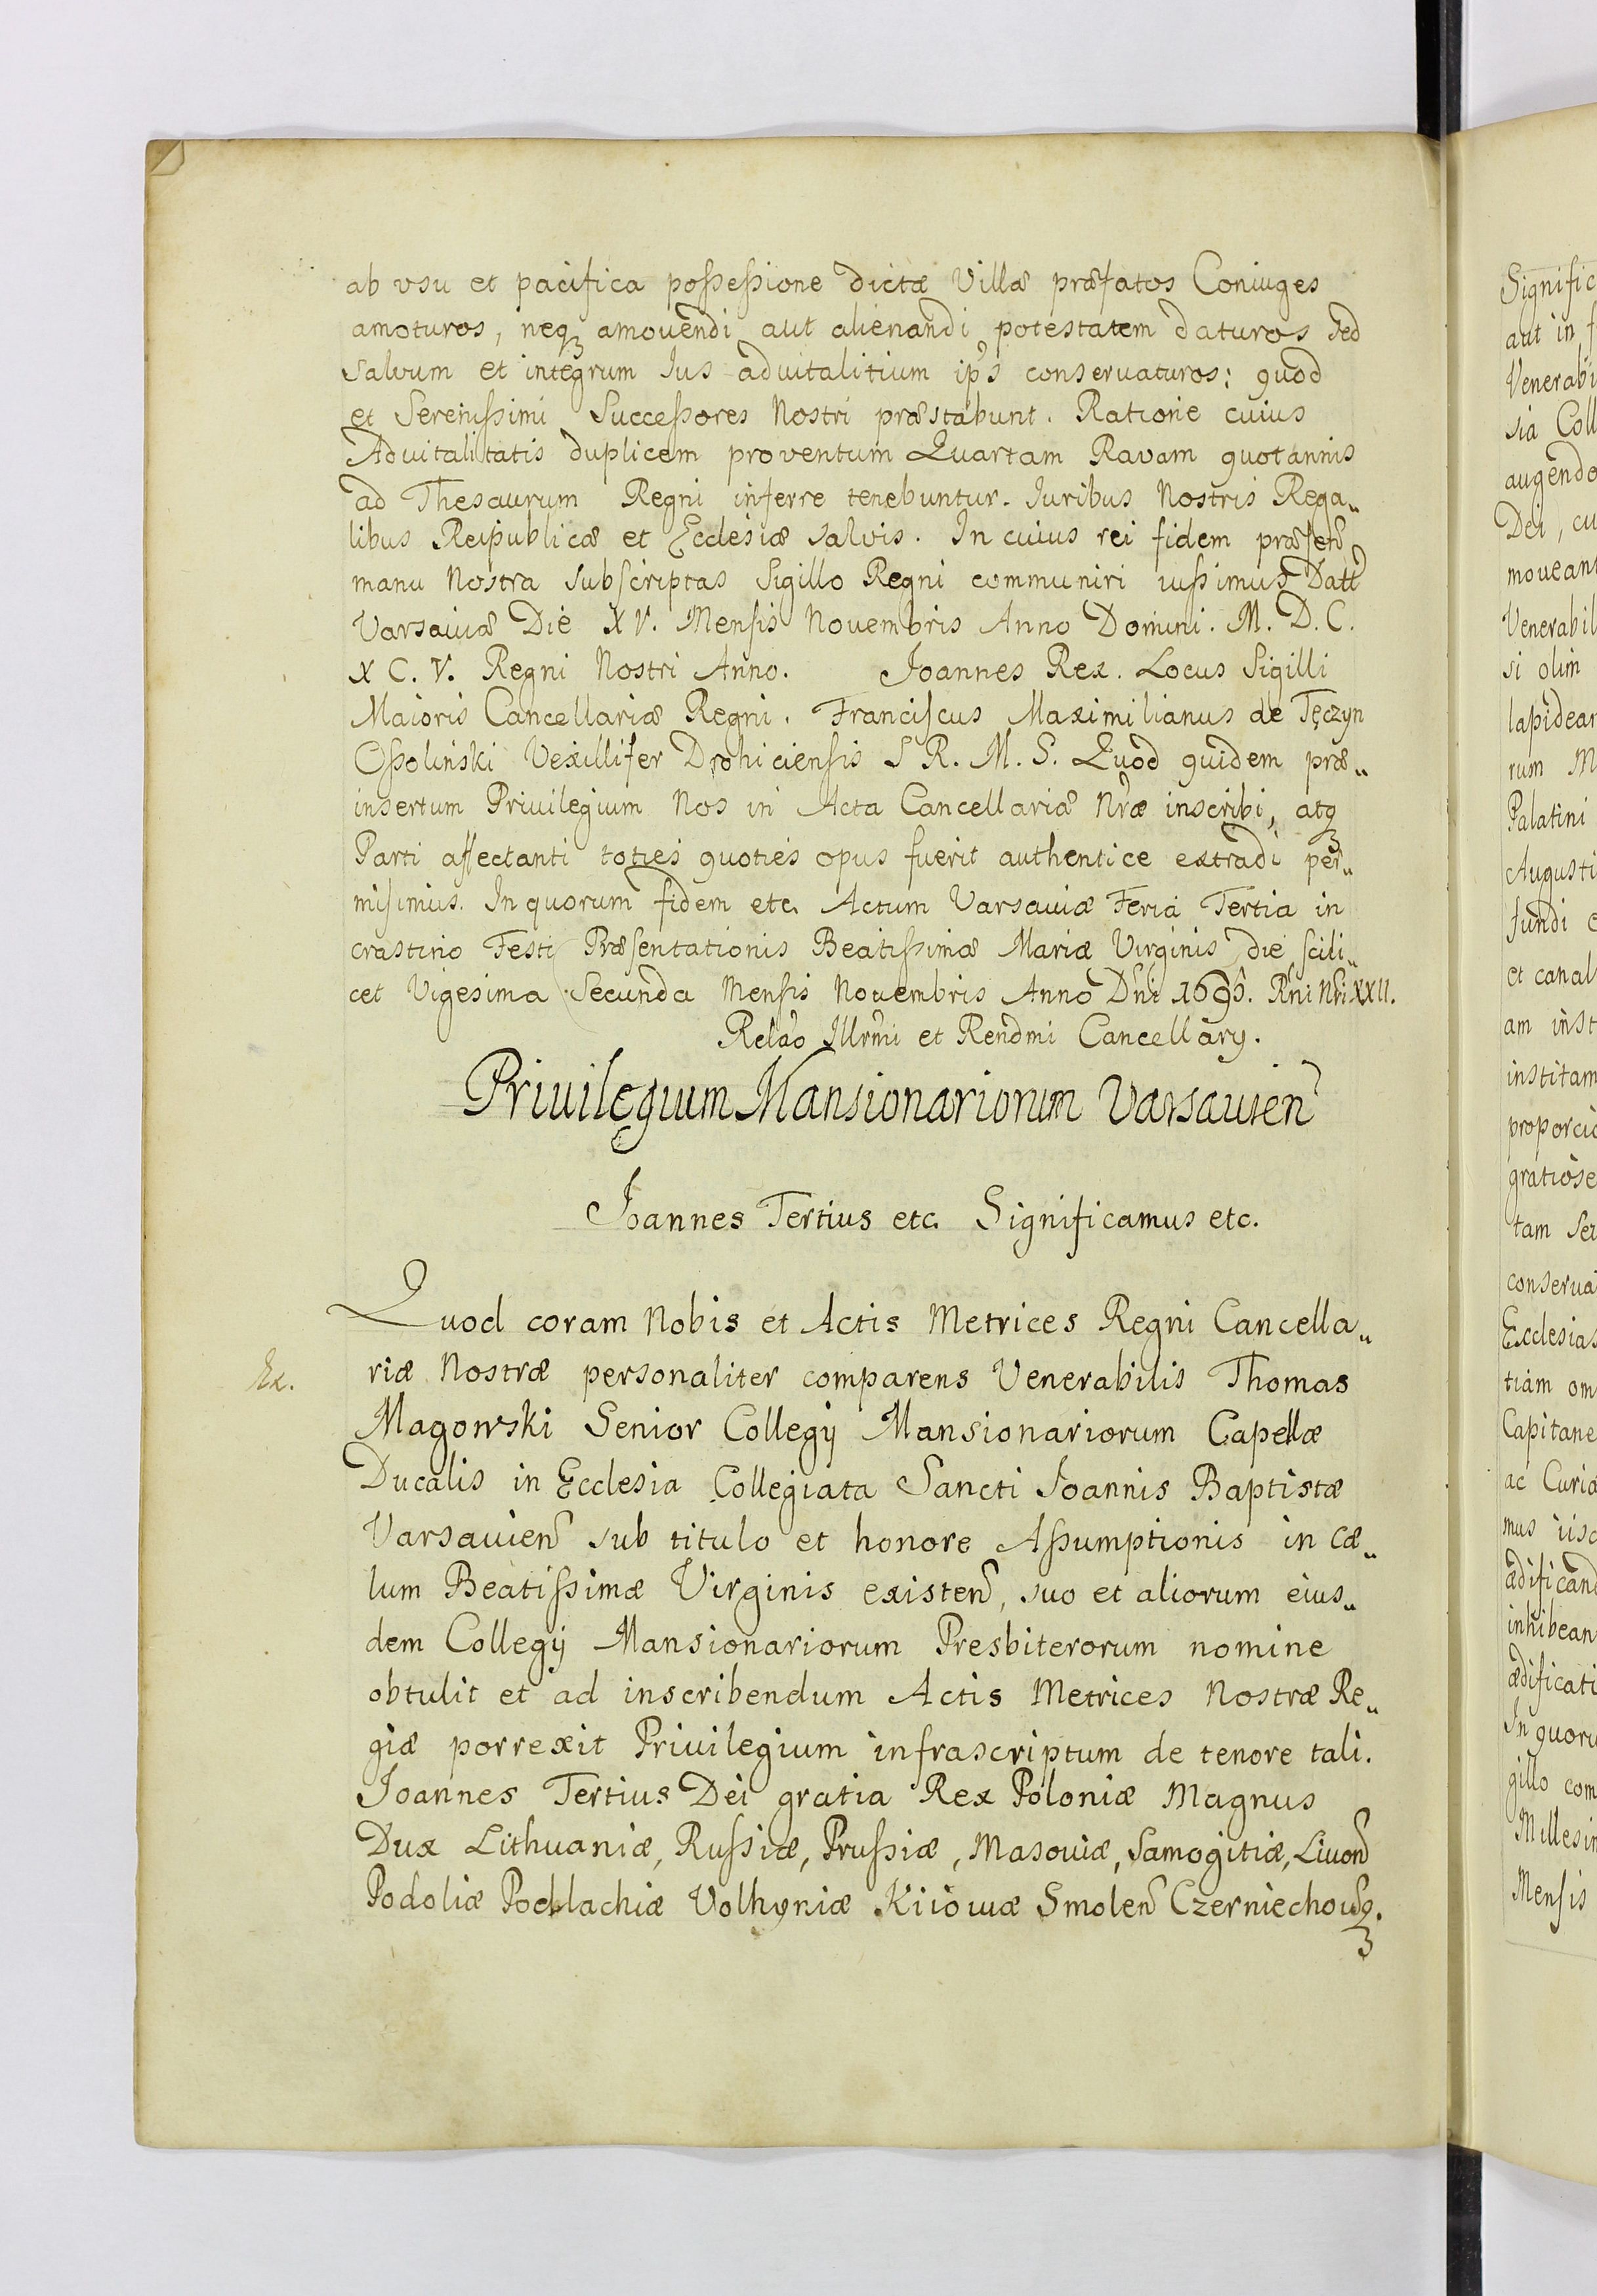 ab vsu et pacifica poſseſsione dictæ Villæ præfatos Coniuges
amoturos, neqꝫ amouendi aut alienandi potestatem daturos sed
salvum et integrum Ius aduitalitium ip̃s conseruaturos: quod
et Sereniſsimi Succeſsores Nostri præstabunt. Ratione cuius
Aduitalitatis duplicem proventum Quartam Ravam quotannis
ad Thesaurum Regni inferre tenebuntur. Iuribus Nostris Rega„
libus Reipublicæ et Ecclesiæ salvis. In cuius rei fidem præſeñ
manu Nostra subſcriptas Sigillo Regni communiri iuſsimus Datt
Varsauiæ Die XV. Menſis Nouembris Anno Domini. M. D. C.
X C. V. Regni Nostri Anno. Joannes Rex. Locus Sigilli
Maioris Cancellariæ Regni. Franciſcus Maximilianus de Tęczyn
Oſsoliński Vexillifer Drohicienſis S R. M. S. Quod quidem præ„
insertum Priuilegium Nos in Acta Cancellariæ Nr̃æ inscribi, atqꝫ
Parti affectanti toties quoties opus fuerit authentice extradi per„
miſimus. In quorum fidem etc. Actum Varsauiæ Feria Tertia in
crastino Festi Præſentationis Beatiſsimæ Mariæ Virginis die ſcili„
cet Vigesima Secunda Menſis Nouembris Anno Dñi 1695. Rñi Nr̃i XXII.
Relao Illr̃mi et Rendmi Cancellary.
Priuilegium Mansionariorum Varsauien̄
Joannes Tertius etc. Significamus etc.
Quod coram Nobis et Actis Metrices Regni Cancella„
Ex.
riæ Nostræ personaliter comparens Venerabilis Thomas
Magowski Senior Collegij Mansionariorum Capellæ
Ducalis in Ecclesia Collegiata Sancti Joannis Baptistæ
Varsauien̄ sub titulo et honore Aſsumptionis in Cæ„
lum Beatiſsimæ Virginis existen̄, suo et aliorum eius„
dem Collegij Mansionariorum Presbiterorum nomine
obtulit et ad inscribendum Actis Metrices Nostræ Re„
giæ porrexit Priuilegium infrascriptum de tenore tali.
Joannes Tertius Dei gratia Rex Poloniæ Magnus
Dux Lithuaniæ, Ruſsiæ, Pruſsiæ, Masouiæ, Samogitiæ, Liuon̄
Podoliæ Podlachiæ Volhyniæ Kiiouiæ Smolen̄ Czerniechouq̃ꝫ.
Signific
aut in f
Venerabi
sia Coll
augendo
Dei, cu
moueant
Venerabil
si olim
lapidear
rum M
Palatini
Augusti
fundi e
et canal
am inst
institam
proporcio
gratiose
tam Ser
conserua
Ecclesias
tiam om
Capitane
ac Curia
mus iisd
ædificand
inhibean
ædificati
In quoru
gillo com
Millesim
Mensis